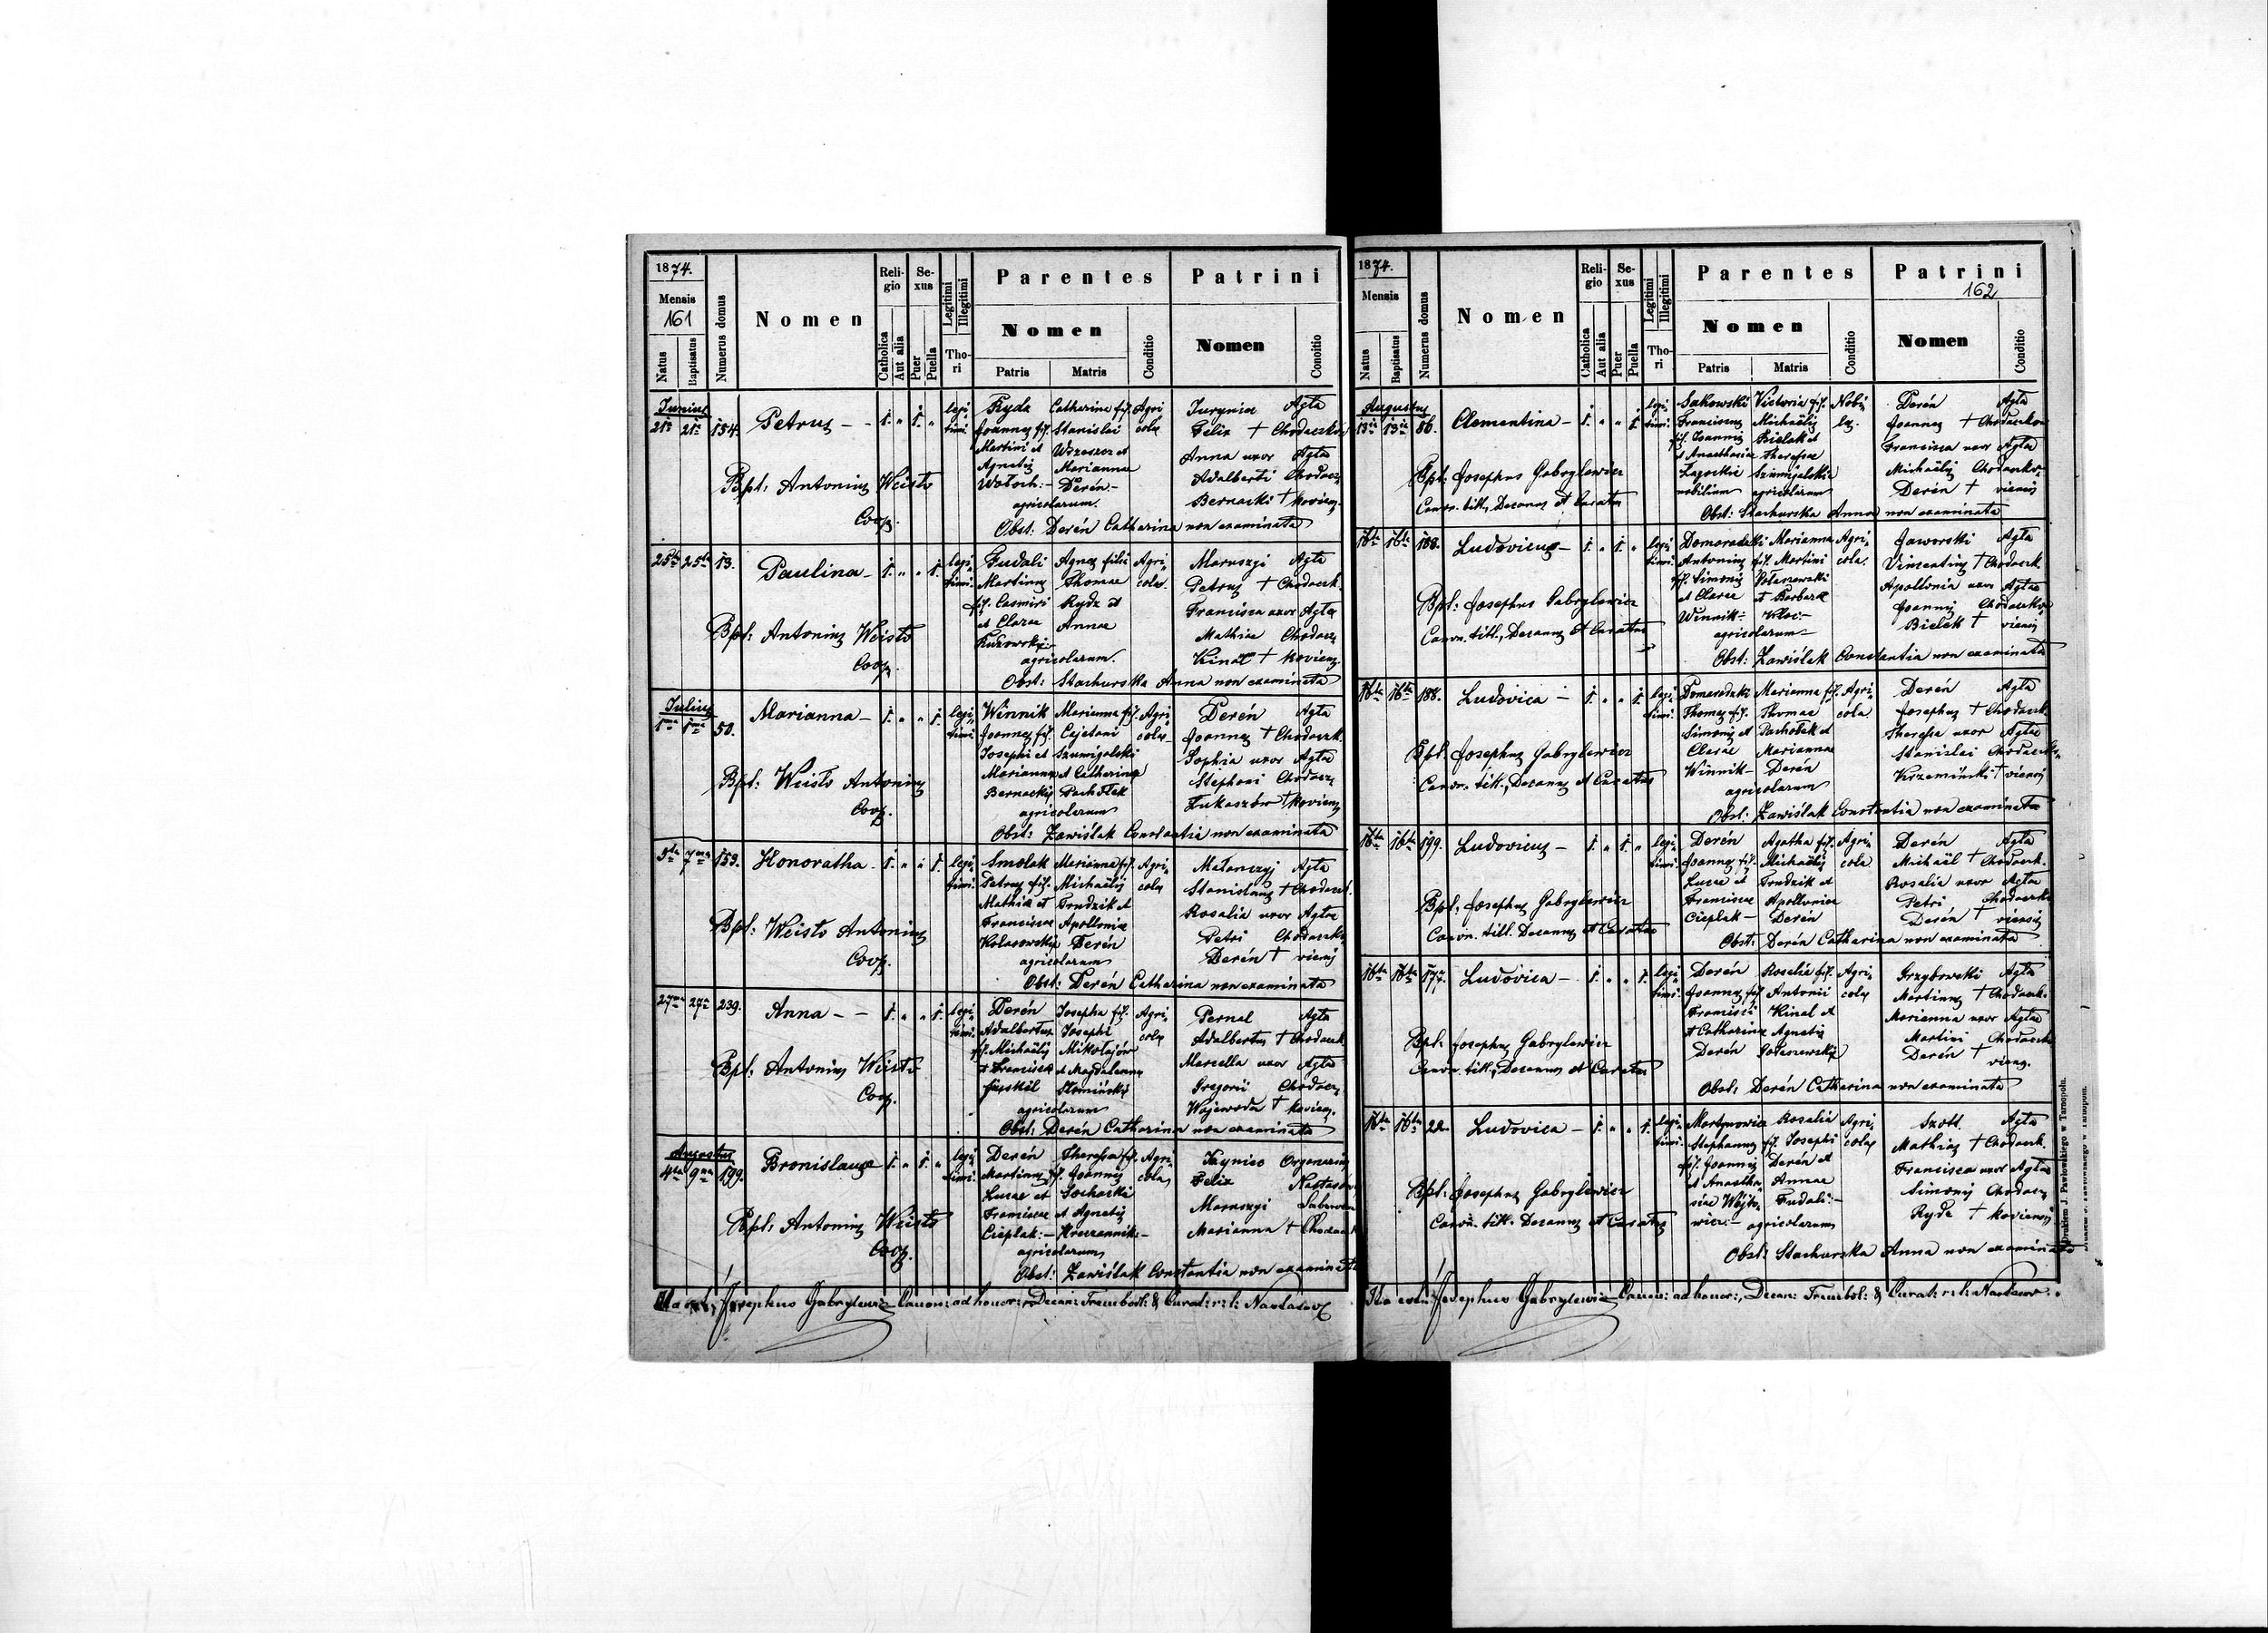 1874.
Mensis
161
Natus
Baptisatus
Numerus domus
Nomen
Religio
Catholica
Aut alia
Sexus
Puer
Puella
Legitimi
Illegitimi
Thori
Parentes
Nomen
Patris
Matris
Conditio
Patrini
Nomen
Conditio
Junius
21a 21a 154. Petrus - - 1. " 1. " legitimi.
Ryda Joannes fil. Martini et Agnetis Wołoch:-
Catharina fil. Stanislai Wrzoszcz et Mariannae Derén.-
agricolarum.
Agricola
Felix † Agta Chodaczkov
Anna uxor Adalberti Bernacki † Agta Chodaczkoviens.
Bpt: Antonius Weisło
Coop.
Obst: Derén Catharina non examinata
25ta 25ta 13. Paulina - 1. " " 1. legitimi.
Gudali Martinus fil. Casimiri et Clarae
Agnes filia Thomae Rydz et Annae
agricolarum.
Agricola.
Maruszyj Petrus † Agta Chodaczk.
Francisca uxor Mathiae Kinal † Agta Chodaczkoviens.
Bpt: Antonius Weisło
Coop.
Obst: Stachurska Anna non examinata
Julius
1ma 1ma 50. Marianna - 1. " " 1. legitimi.
Winnik Joannes fil. Josephi et Mariannae Bernackis
Marianna fil. Cajetani Szumigalski et Catharinae Pachołek
agricolarum
Agricola
Derén Joannes † Agta Chodaczk.
Sophia uxor Stephani Łukaszów † Agta Chodaczkoviens
Bpt: Weisło Antonius
Coop.
Obst: Zawiślak Constantia non examinata
5ta 7ma 153. Honoratha - 1. " " 1. legitimi.
Smolak Petrus fil. Mathiae et Franciscae
Marianna fil. Michaëlis Trudzik et Apolloniae Derén
agricolarum
Agricola
Stanislaus † Agta Chodaczk.
Rosalia uxor Petri Derén † Agta Chodaczkoviens
Bpt: Weisło Antonius
Coop.
Obst: Derén Catharina non examinata
27ma 27a 239. Anna - - 1. " " 1. legitimi.
Derén Adalbertus fil. Michaëlis et Franciscae
Josepha fil. Josephi Mikołajów et Magdalenae
agricolarum
Agricola
Pernal Adalbertus † Agta Chodaczk.
Marcella uxor Gregorii Wojewoda † Agta Chodaczkoviens.
Bpt: Antonius Weisło
Coop.
Obst: Derén Catharina non examinata
Augustus
4ta 9na 199. Bronislaus 1. " 1. " legitimi.
Derén Martinus fil. Lucae et Franciscae Cieplak:-
Theresa fil. Joannis Sochacki et Agnetis
agricolarum
Agricola
Felix
Maruszyj Marianna †
Bpt: Antonius Weisło
Coop.
Obst: Zawiślak Constantia non examinata
Ita est, Josephus Gabrylewicz Canon: ad honor:, Decan: Trembovl: & Curat: r: l: Nastasov
1874.
Mensis
Natus
Baptisatus
Numerus domus
Nomen
Religio
Catholica
Aut alia
Sexus
Puer
Puella
Legitimi
Illegitimi
Thori
Parentes
Nomen
Patris
Matris
Conditio
Patrini
162
Nomen
Conditio
Augustus
13ia 13ia 86. Clementina - 1. " " 1. legitimi.
Sakowski Franciscus fil. Joannis et Anasthasiae nobilium
Victoria fil. Michaëlis Bielak et Theresae agricolarum
Derén Joannes † Agta Chodaczkov
Francisca uxor Michaëlis Derén † Agta Chodaczkoviensis
Bpt: Josephus Gabrylewicz
Canon. tit., Decanus et Curatus
Obst: Stachurska Anna non examinata
16ta 16ta 188. Ludovicus - 1. " 1. " legitimi.
Domaradzki Antonius fil. Simonis et Clarae Winnik:-
Marianna fil. Martini et Barbarae
agricolarum-
Agricola.
Jaworski Vincentius † Agta Chodaczk.
Apollonia uxor Joannis Bielak † Agta Chodaczkoviens
Bpt: Josephus Gabrylewicz
Canon. tit., Decanus et Curatus
Obst: Zawiślak Constantia non examinata
16ta 16ta 188. Ludovica - 1. " " 1. legitimi.
Domaradzki Thomas fil. Simonis et Clarae Winnik-
Marianna fil. Thomae Pachołek et Mariannae Derén
agricolarum
Agricola
Derén Josephus † Agta Chodaczk.
Theresa uxor Stanislai Krzemiński † Agta Chodaczkoviensis
Bpt: Josephus Gabrylewicz
Canon. tit., Decanus et Curatus
Obst: Zawiślak Constantia non examinata
16ta 16ta 199. Ludovicus - 1. " 1. " legitimi.
Derén Joannes fil. Lucae et Franciscae Cieplak-
Agatha fil. Michaëlis Trudzik et Apolloniae Derén
Agricola
Derén Michaël † Agta Chodaczk.
Rosalia uxor Petri Derén † Agta Chodaczkoviensis
Bpt, Josephus Gabrylewicz
Canon. tit. Decanus et Curatus
Obst: Derén Catharina non examinata
16ta 16ta 177. Ludovica - 1. " " 1. legitimi.
Derén Joannes fil. Francisci et Catharinae Derén
Rosalia fil. Antonii Kinal et Agnetis
Agricola
Grzybowski Martinus † Agta Chodaczk.
Marianna uxor Martini Derén † Agta Chodaczkoviens.
Bpt: Josephus Gabrylewicz
Canon. tit., Decanus et Curatus
Obst: Derén Catharina non examinata
16ta 16ta 22. Ludovica - 1. " " 1. legitimi.
Martynowicz Stephanus fil. Joannis et Anasthasiae Wójtowicz:-
Rosalia fil. Josephi Derén et Annae Gudali:-
agricolarum
Agricola
Szott Mathias † Agta Chodaczk.
Francisca uxor Simonis Ryda † Agta Chodaczkoviensis
Bpt: Josephus Gabrylewicz
Canon. tit. Decanus et Curatus
Obst: Stachurska Anna non examinata
Ita est: Josephus Gabrylewicz Canon: ad honor:, Decan: Trembovl: & Curat: r: l: Nastasov
Drukiem J. Pawłowskiego w Tarnopolu.